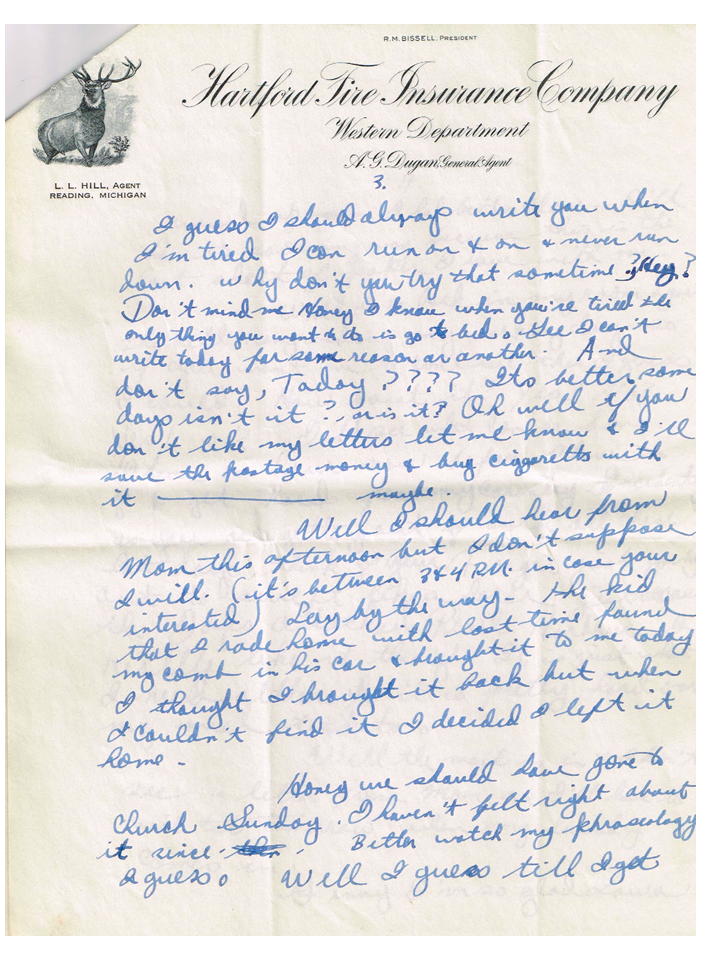 R.M. BISSELL, PRESIDENT
Hartford Fire Insurance Company
Western Department
A.G. Dugan, General Agent
L. L. HILL, AGENT
READING, MICHIGAN
3.
I guess I should always write you when
I'm tired I can run on & on & never run
down. Why don't you try that sometime?, Hey?
Don't mind me Honey I know when you're tired the
only thing you want to do is go to bed. Gee I can't
write today for some reason or another. And
don't say, Today ???? Its better some
days isn't it?, or is it? Oh well if you
don't like my letters let me know & I'll
save the postage money & buy ciggaretts with
it ———— maybe.
Well I should hear from
Mom this afternoon but I don't suppose
I will. (it's between 3&4 P.M. in case your
interested) Say by the way - the kid
that I rode home with last time found
my comb in his car & brought it to me today
I thought I brought it back but when
I couldn't find it I decided I left it
home -
Honey we should have gone to
church Sunday. I haven't felt right about
it since. Better watch my phraseology
I guess. Well I guess till I get